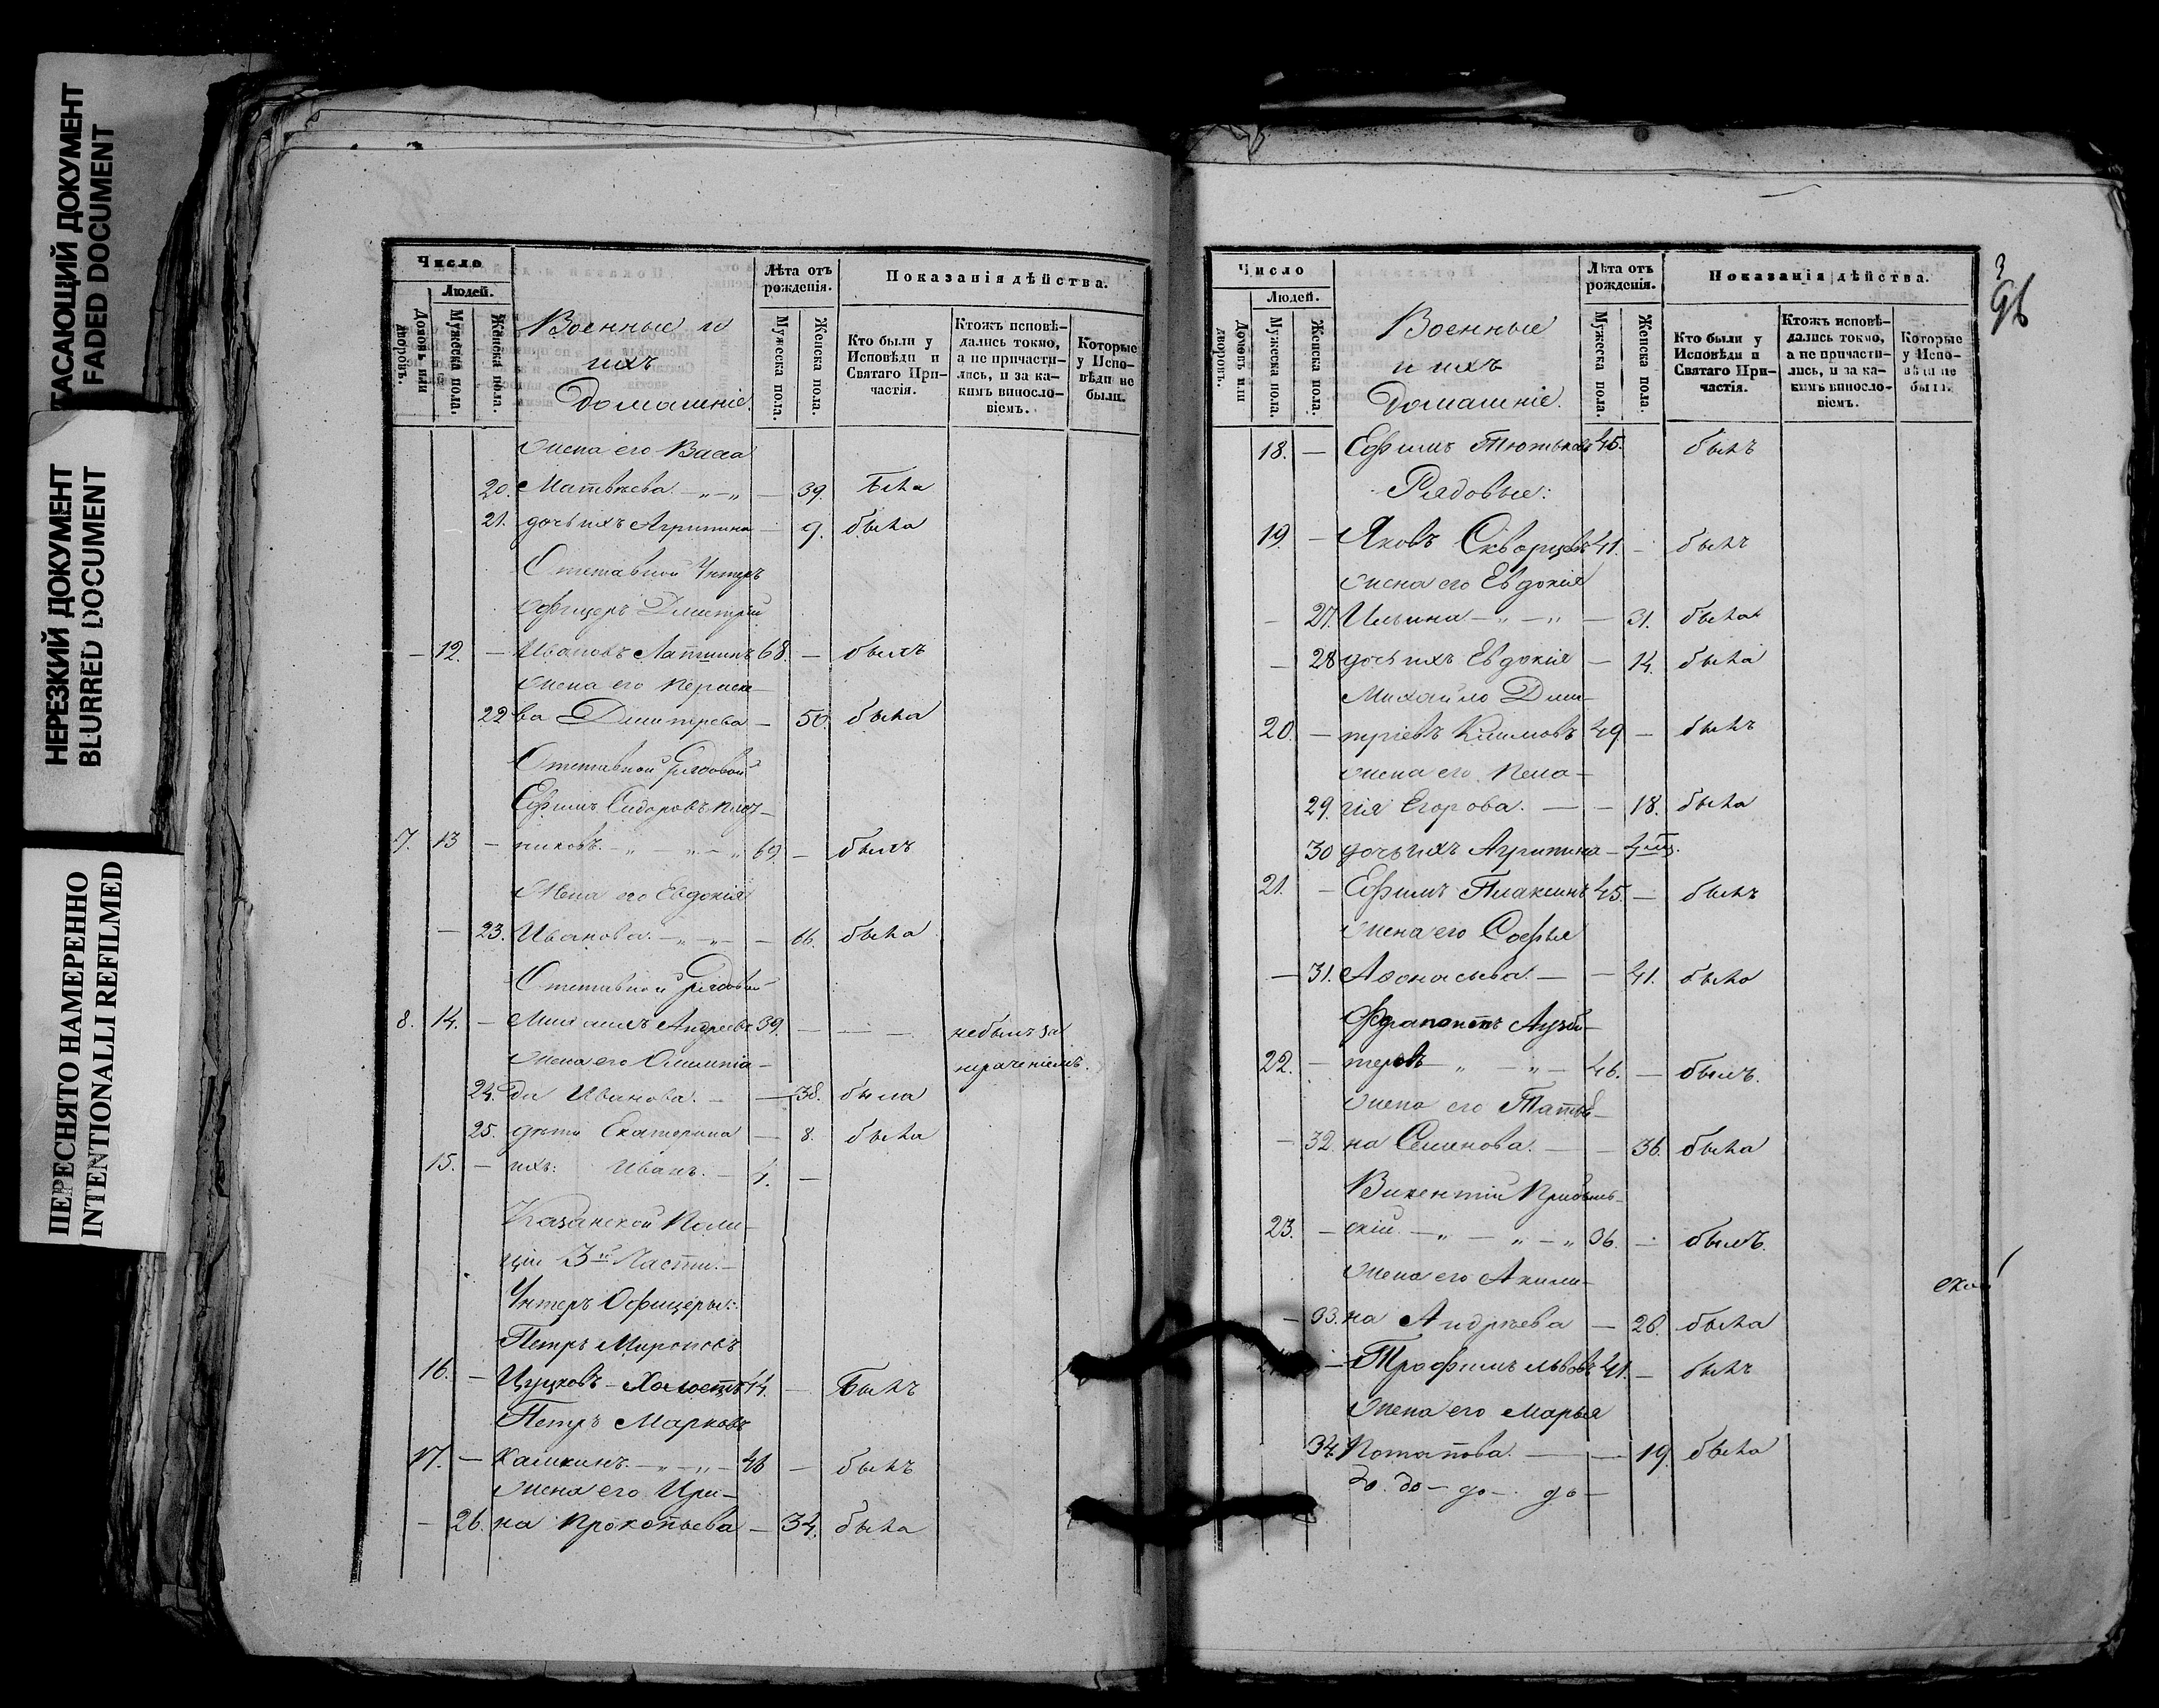 ГАСАЮЩИЙ ДОКУМЕНТ
FADED DOCUMENT
НЕРЕЗКИЙ ДОКУМЕНТ
BLURRED DOCUMENT
ПЕРЕСНЯТО НАМЕРЕННО
INTENTIONALLI REFILMED
Число
Людей.
Домовъ или дворовъ.
Мужеска пола.
Женска пола.
Военные и
ихъ
Домашніе.
Лѣта отъ рожденія.
Мужеска пола.
Женска пола.
Показанія дѣйства.
Кто были у Исповѣди и Святаго Причастія.
Ктожъ исповѣдались токмо, а не причастились, и за какимъ винословіемъ.
Которые у Исповѣди не были.
жена его Васса
20. Матвѣева — 39. Была
21. дочь ихъ Агрипина — 9. была
Отставной Унтеръ
Офицеръ Дмитрій
— 12. — Ивановъ Лапшинъ 68. — былъ
жена его Параске-
22 ва Дмитрева — 50. была
Отставной Рядовой
Ефимъ Сидоровъ
7. 13 — никовъ. — 69. — былъ
Жена его Евдокія
— 23. Иванова. — 66. была
Отставной Рядовой
8. 14. — Андреевъ 39. — — — небылъ за
жена его Олимпіа- нераченіемъ.
24. да Иванова. — 38. была
25. дѣти Екатерина — 8. была
15. — ихъ: Иванъ. — 4. —
Казанской Поли-
ціи 3й Части.
Унтеръ Офицеры:
Петръ Мироновъ
16. — Холостъ 44. — Былъ
Петръ Марковъ
17. — Калинкинъ. — 46 — былъ
жена его Ири-
— 26. на Прокопьева — 34. была
3
96
Число
Людей.
Домовъ или дворовъ.
Мужеска пола.
Женска пола.
Военные
и ихъ
Домашніе.
Лѣта отъ рожденія.
Мужеска пола.
Женска пола.
Показанія дѣйства.
Кто были у Исповѣди и Святаго Причастія.
Ктожъ исповѣдались токмо, а не причастились, и за какимъ винословіемъ.
Которые у Исповѣди не были.
18. — Ефимъ Тютьковъ 45. былъ
Рядовые:
19. — Яковъ Скворцовъ 41. — былъ
жена его Евдокія
— 27. Ильина — 31. была
— 28 дочь ихъ Евдокія — 14. была
Михайло Дми-
20. — тріевъ Климовъ 49 — былъ
жена его Пела-
29. гія Егорова. — 18. была
30 дочь ихъ Агрипина —
21. — Ефимъ Плаксинъ 45. — былъ
жена его Софья
— 31. Афонасьева. — 41. была
22. — теровъ — 46. — былъ.
жена его Татья-
— 32. на Семенова. — 36. была
Викентій
23. — скій. — 36. — былъ.
жена его Акили-
— 33. на Андреева — 26. была
— Трофимъ Львовъ 41. — былъ
Жена его Марья
34. Потапова. — 19. была
до. до — до — до —